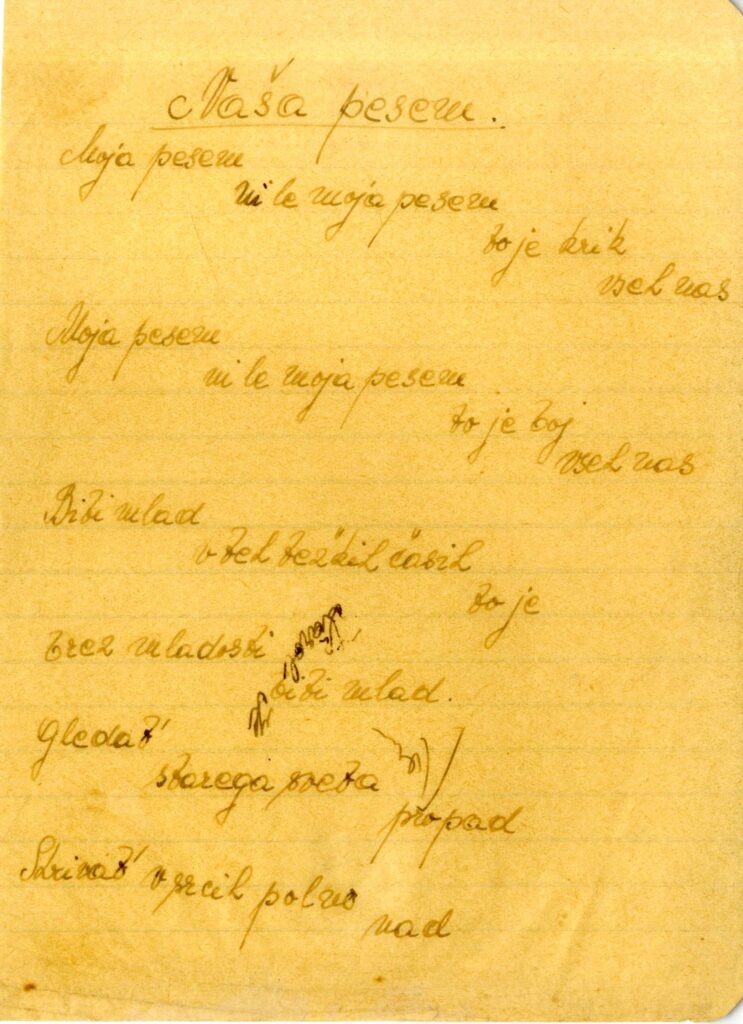 Naša pesem.
Moja pesem
ni le moja pesem
to je krik
vseh nas
Moja pesem
ni le moja pesem
to je boj
vseh nas
Biti mlad
v teh težkih časih
to je
brez mladosti
biti mlad.
Gledat'
starega sveta
propad
Skrivat' v srcih polno
nad